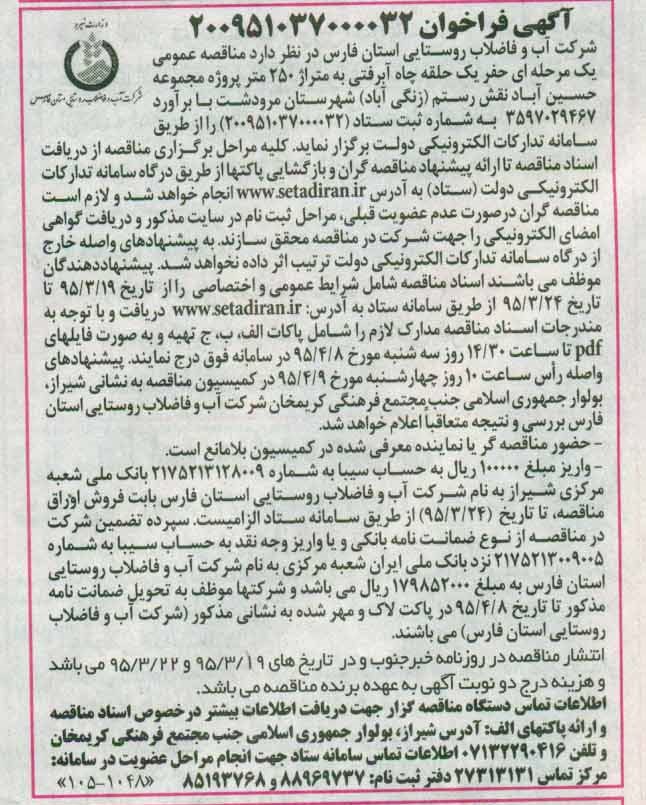 آگهی فراخوان ۲۰۰۹۵۱۰۳۷۰۰۰۰۳۲
وزارت نیرو
شرکت آب و فاضلاب روستایی استان فارس
شرکت آب و فاضلاب روستایی استان فارس در نظر دارد مناقصه عمومی
یک مرحله ای حفر یک حلقه چاه آبرفتی به متراژ ۲۵۰ متر پروژه مجموعه
حسین آباد نقش رستم (زنگی آباد) شهرستان مرودشت با برآورد
۳۵۹۷۰۲۹۴۶۷ به شماره ثبت ستاد (۲۰۰۹۵۱۰۳۷۰۰۰۰۳۲) را از طریق
سامانه تدارکات الکترونیکی دولت برگزار نماید. کلیه مراحل برگزاری مناقصه از دریافت
اسناد مناقصه تا ارائه پیشنهاد مناقصه گران و بازگشایی پاکتها از طریق درگاه سامانه تدارکات
الکترونیکی دولت (ستاد) به آدرس www.setadiran.ir انجام خواهد شد و لازم است
مناقصه گران درصورت عدم عضویت قبلی، مراحل ثبت نام در سایت مذکور و دریافت گواهی
امضای الکترونیکی را جهت شرکت در مناقصه محقق سازند. به پیشنهادهای واصله خارج
از درگاه سامانه تدارکات الکترونیکی دولت ترتیب اثر داده نخواهد شد. پیشنهاددهندگان
موظف می باشند اسناد مناقصه شامل شرایط عمومی و اختصاصی را از تاریخ ۹۵/۳/۱۹ تا
تاریخ ۹۵/۳/۲۴ از طریق سامانه ستاد به آدرس: www.setadiran.ir دریافت و با توجه به
مندرجات اسناد مناقصه مدارک لازم را شامل پاکات الف، ب، ج تهیه و به صورت فایلهای
pdf تا ساعت ۱۴/۳۰ روز سه شنبه مورخ ۹۵/۴/۸ در سامانه فوق درج نمایند. پیشنهادهای
واصله رأس ساعت ۱۰ روز چهارشنبه مورخ ۹۵/۴/۹ در کمیسیون مناقصه به نشانی شیراز،
بولوار جمهوری اسلامی جنب مجتمع فرهنگی کریمخان شرکت آب و فاضلاب روستایی استان
فارس بررسی و نتیجه متعاقباً اعلام خواهد شد.
- حضور مناقصه گر یا نماینده معرفی شده در کمیسیون بلامانع است.
- واریز مبلغ ۱۰۰۰۰۰ ریال به حساب سیبا به شماره ۲۱۷۵۲۱۳۱۲۸۰۰۹ بانک ملی شعبه
مرکزی شیراز به نام شرکت آب و فاضلاب روستایی استان فارس بابت فروش اوراق
مناقصه، تا تاریخ (۹۵/۳/۲۴) از طریق سامانه ستاد الزامیست. سپرده تضمین شرکت
در مناقصه از نوع ضمانت نامه بانکی و یا واریز وجه نقد به حساب سیبا به شماره
۲۱۷۵۲۱۳۰۰۹۰۰۵ نزد بانک ملی ایران شعبه مرکزی به نام شرکت آب و فاضلاب روستایی
استان فارس به مبلغ ۱۷۹۸۵۲۰۰۰ ریال می باشد و شرکتها موظف به تحویل ضمانت نامه
مذکور تا تاریخ ۹۵/۴/۸ در پاکت لاک و مهر شده به نشانی مذکور (شرکت آب و فاضلاب
روستایی استان فارس) می باشند.
انتشار مناقصه در روزنامه خبرجنوب و در تاریخ های ۹۵/۳/۱۹ و ۹۵/۳/۲۲ می باشد
و هزینه درج دو نوبت آگهی به عهده برنده مناقصه می باشد.
اطلاعات تماس دستگاه مناقصه گزار جهت دریافت اطلاعات بیشتر درخصوص اسناد مناقصه
و ارائه پاکتهای الف: آدرس شیراز، بولوار جمهوری اسلامی جنب مجتمع فرهنگی کریمخان
و تلفن ۰۷۱۳۲۲۹۰۴۱۶ اطلاعات تماس سامانه ستاد جهت انجام مراحل عضویت در سامانه:
مرکز تماس ۲۷۳۱۳۱۳۱ دفتر ثبت نام: ۸۸۹۶۹۷۳۷ و ۸۵۱۹۳۷۶۸ «۱۰۵-۱۰۴۸»